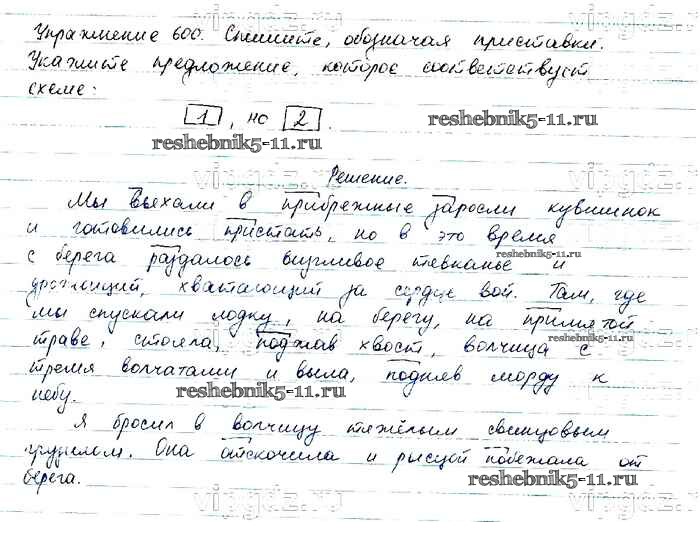 Упражнение 600. Спишите, обозначая приставки.
Укажите предложение, которое соответствует
схеме:
1, но 2.
reshebnik5-11.ru
reshebnik5-11.ru
Решение.
Мы въехали в прибрежные заросли кувшинок
и готовились пристать, но в это время
с берега раздалось визгливое тявканье и
reshebnik5-11.ru
дрожащий, хватающий за сердце вой. Там, где
мы спускали лодку, на берегу, на примятой
reshebnik5-11.ru
траве, стояла, поджав хвост, волчица с
тремя волчатами и выла, подняв морду к
небу.
reshebnik5-11.ru
Я бросил в волчицу тяжёлым свинцовым
грузилом. Она отскочила и рысцой побежала от
берега.
reshebnik5-11.ru
vipgdz.ru